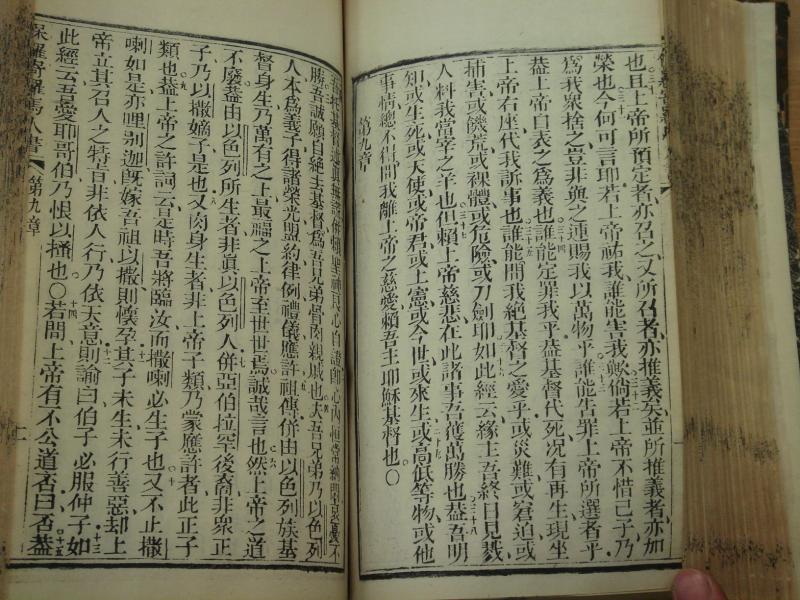 也且上帝所預定者亦召之又所召者亦推義矣並所推義者亦加
榮也今何可言耶若上帝祐我誰能害我歟倘若上帝不惜己子乃
爲我衆捨之豈非與之連賜我以萬物乎誰能告罪上帝所選者乎
葢上帝自表之爲義也誰能定罪我乎葢基督代死况有再生現坐
上帝右座代我訴事也誰能間我絕基督之愛乎或災難或窘迫或
捕害或饑荒或裸體或危險或刀劍耶如此經云緣主吾終日見戮
人料我當宰之羊也但賴上帝慈悲在此諸事吾獲萬勝也葢吾明
知或生死或天使或帝君或上憲或今世或來生或高低等物或他
事情總不得間我離上帝之慈愛賴吾主耶穌基督也〇
第九章
吾托基督述真無謊併賴聖神良心自證卽心內恒常
勝吾誠願自絕主基督爲吾兄弟骨肉親城也夫吾兄弟乃以色列
人本爲義子得諸榮光盟約律例禮儀應許祖傳併由以色列族基
督身生乃萬有之上最福之上帝至世世焉誠哉言也然上帝之道
不廢葢由以色列所生者非眞以色列人併亞伯拉罕後裔非衆正
子乃以撒嫡子是也又肉身生者非上帝子類乃蒙應許者此正子
類也葢上帝之許詞云是時吾將臨汝而撒喇必生子也又不止撒
喇如是亦哩別迦旣嫁吾祖以撒則懷孕其子未生未行善惡却上
帝立其召人之特旨非依人行乃依天意則諭曰伯子必服仲子如
此經云吾愛耶哥伯乃恨以掃也〇若問上帝有不公道否曰否葢
保羅寄羅馬人書
第九章